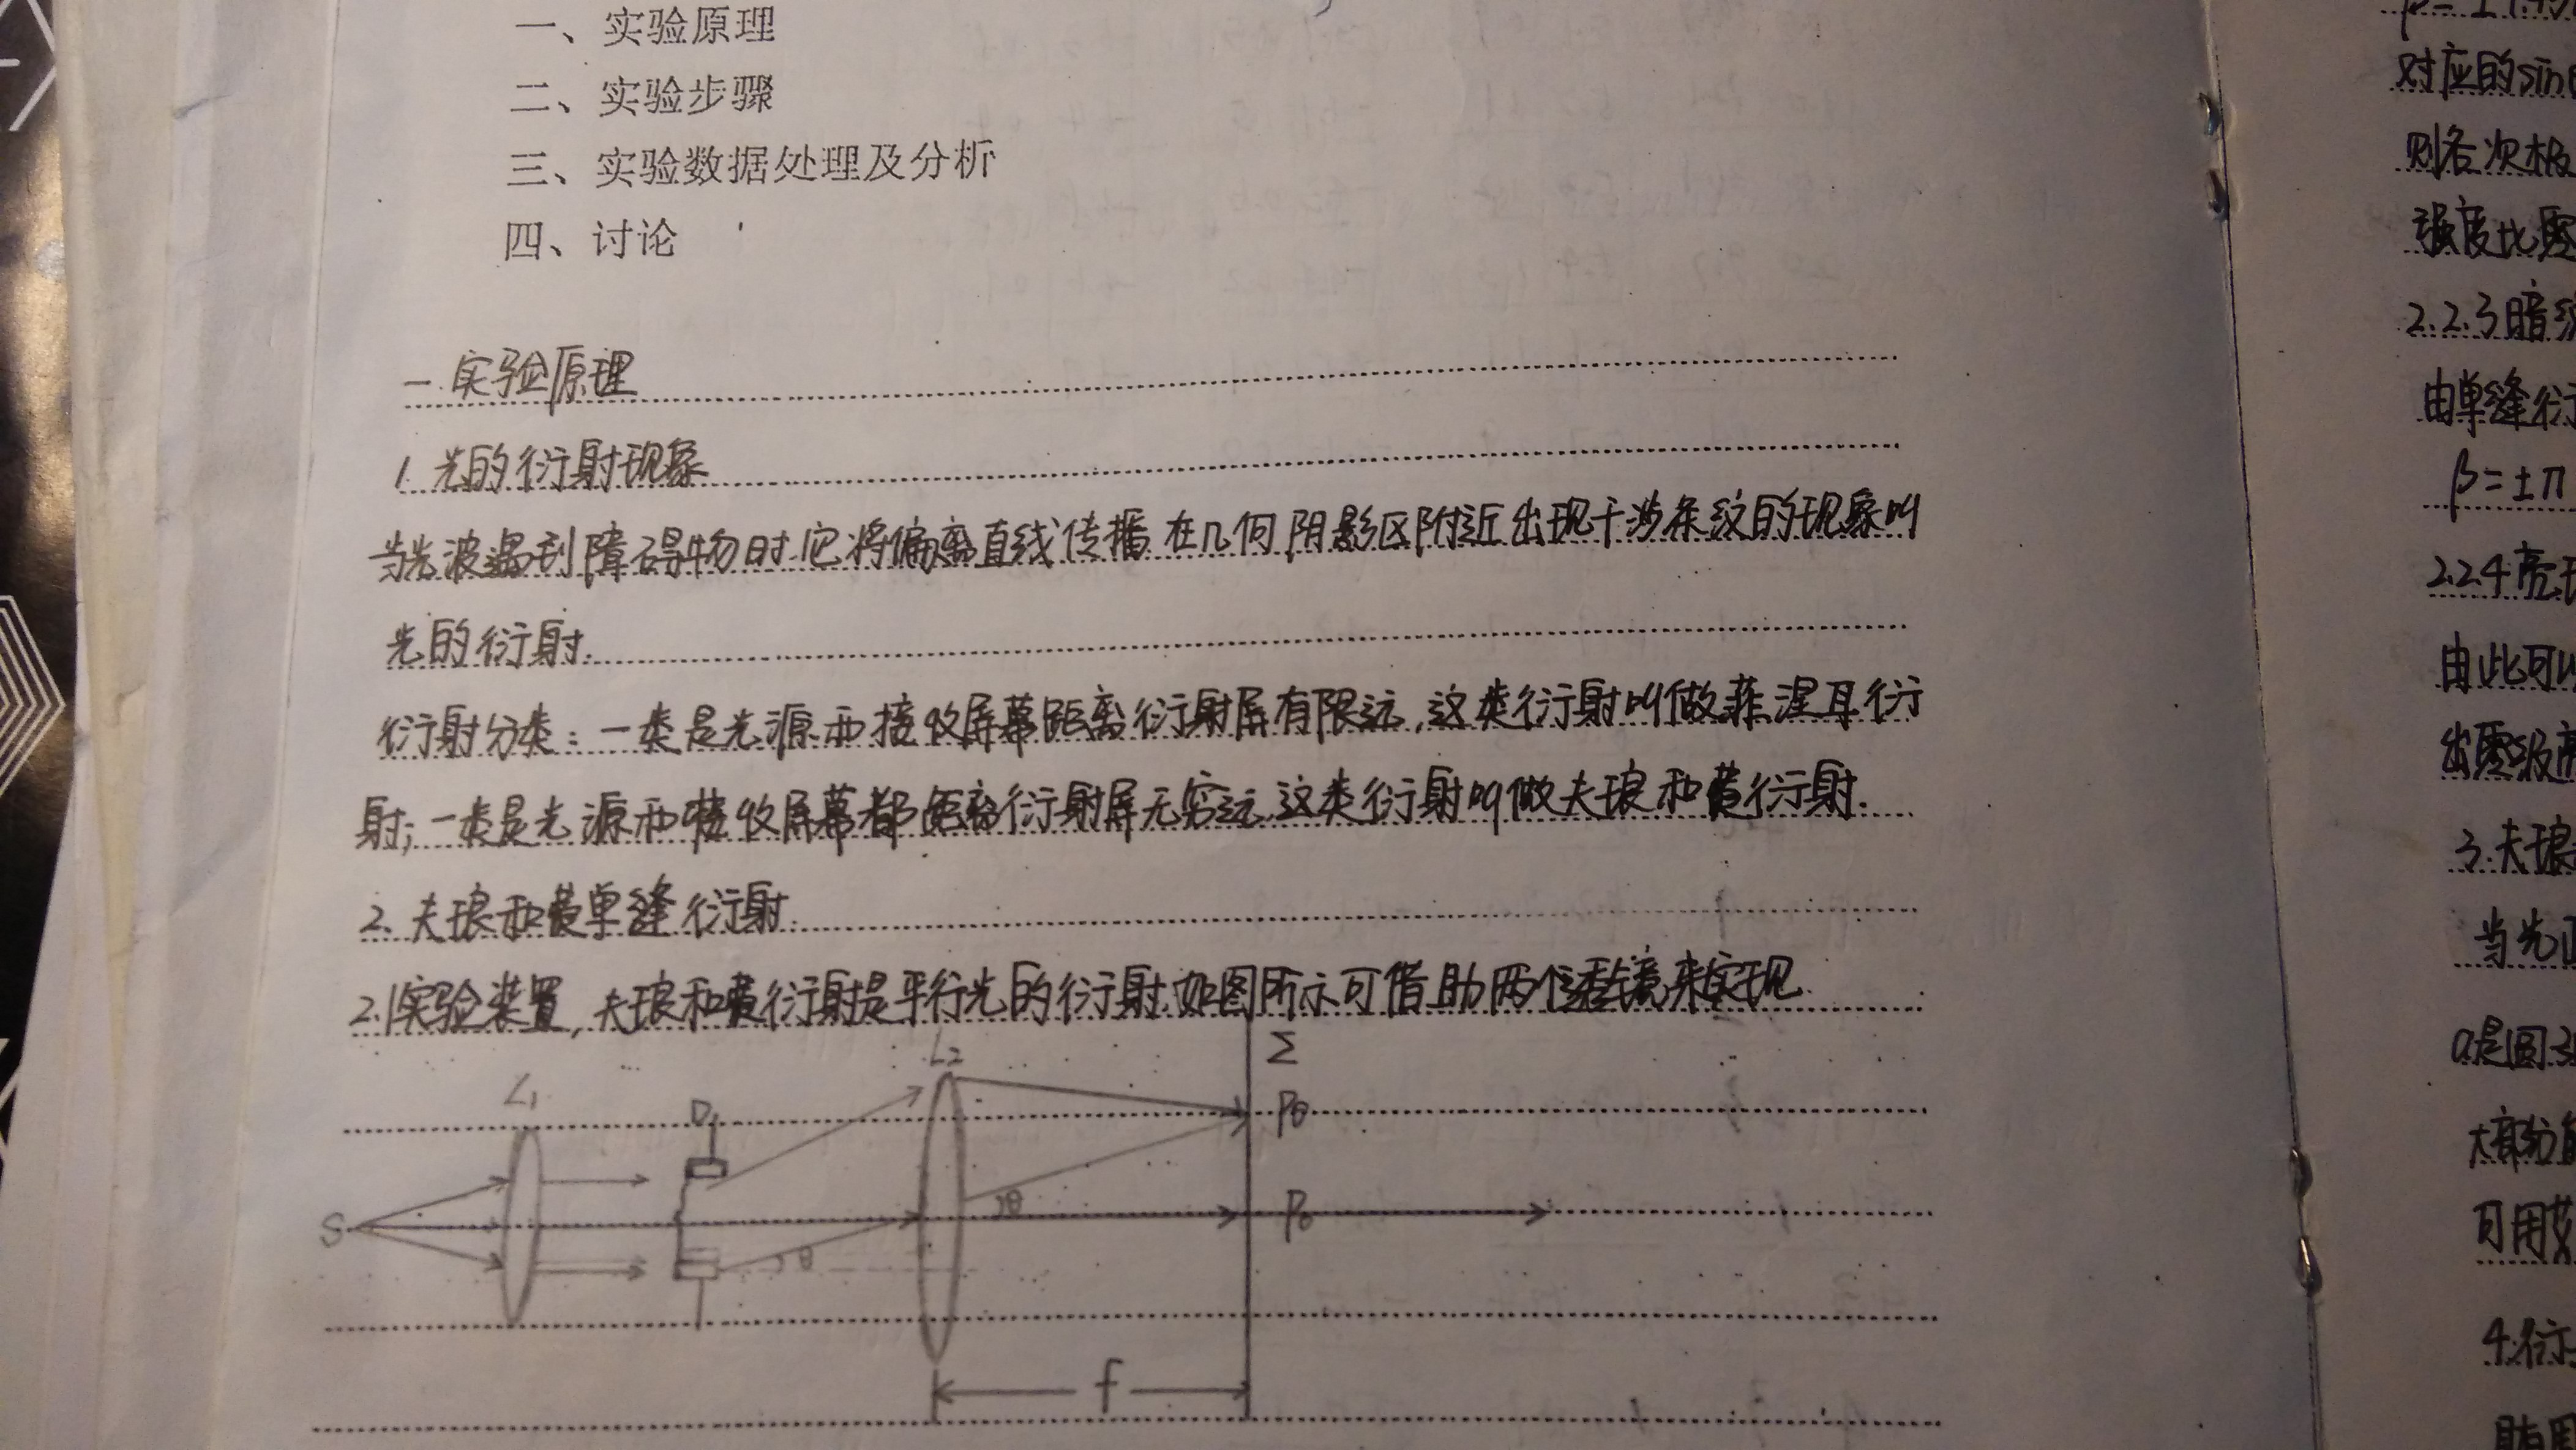 一、实验原理
二、实验步骤
三、实验数据处理及分析
四、讨论
一.实验原理
1.光的衍射现象
当光波遇到障碍物时.它将偏离直线传播.在几何阴影区附近出现干涉条纹的现象叫
光的衍射.
衍射分类:一类是光源和接收屏幕距离衍射屏有限远,这类衍射叫做菲涅耳衍
射;一类是光源和接收屏幕都距离衍射屏无穷远.这类衍射叫做夫琅和费衍射.
2.夫琅和费单缝衍射.
2.1实验装置,夫琅和费衍射是平行光的衍射.如图所示可借助两个透镜来实现.
L1
D
L2
Σ
Pθ
S
θ
θ
P0
f
对应的sin
则各次极
强度比
2.2.3暗
由单缝衍
β=±π
2.2.4亮
由此可
出零级
3.夫琅
当光
a是圆
大部分
可用
4.衍